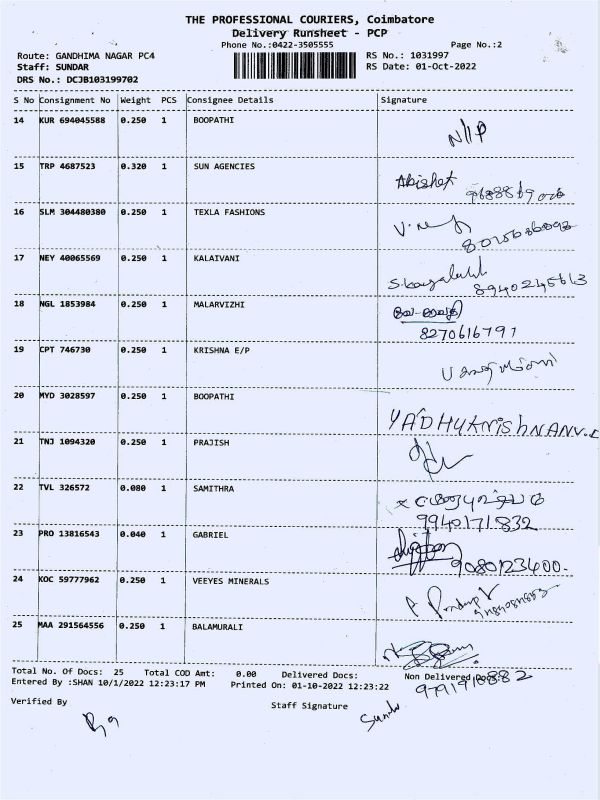 THE PROFESSIONAL COURIERS, Coimbatore
Delivery Runsheet - PCP
Phone No.:0422-3505555 Page No.:2
Route: GANDHIMA NAGAR PC4 RS No.: 1031997
Staff: SUNDAR RS Date: 01-Oct-2022
DRS No.: DCJB103199702
S No Consignment No Weight PCS Consignee Details Signature
14 KUR 694045588 0.250 1 BOOPATHI
15 TRP 4687523 0.320 1 SUN AGENCIES
Abishek
16 SLM 304480380 0.250 1 TEXLA FASHIONS
17 NEY 40065569 0.250 1 KALAIVANI
8940245613
18 NGL 1853984 0.250 1 MALARVIZHI
8270616791
19 CPT 746730 0.250 1 KRISHNA E/P
20 MYD 3028597 0.250 1 BOOPATHI
YADHUKRISHNAN V.
21 TNJ 1094320 0.250 1 PRAJISH
22 TVL 326572 0.080 1 SAMITHRA
9940171832
23 PRO 13816543 0.040 1 GABRIEL
9080123400
24 KOC 59777962 0.250 1 VEEYES MINERALS
25 MAA 291564556 0.250 1 BALAMURALI
Total No. Of Docs: 25 Total COD Amt: 0.00 Delivered Docs: Non Delivered Docs:
9791910882
Entered By :SHAN 10/1/2022 12:23:17 PM Printed On: 01-10-2022 12:23:22
Verified By Staff Signature